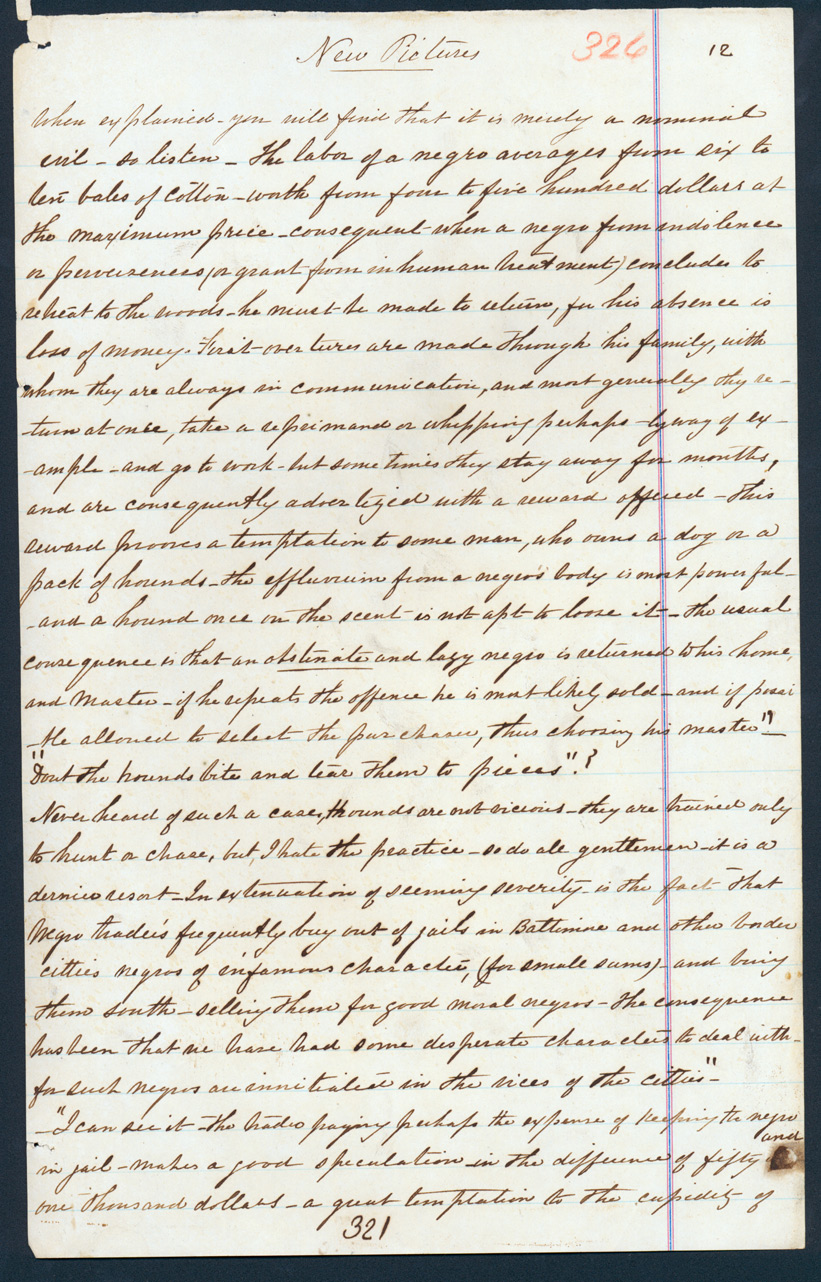 New Pictures 326 12
When explained - you will find that it is merely a nominal
evil - so listen - The labor of a negro averages from six to
ten bales of cotton - worth from four to five hundred dollars at
the maximum price - consequent when a negro from indolence
or perverseness (or grant from inhuman treatment) concludes to
retreat to the woods - he must be made to return, for his absence is
loss of money - First overtures are made through his family, with
whom they are always in communication, and most generally they re-
-turn at once, take a reprimand or whipping perhaps - by way of ex-
-ample - and go to work - but some times they stay away for months,
and are consequently advertized with a reward offered - This
reward prooves a temptation to some man, who owns a dog or a
pack of hounds - the effluvium from a negro's body is most powerful -
- and a hound once on the scent is not apt to loose it - the usual
consequence is that an obstinate and lazy negro is returned to his home,
and Master - if he repeats the offence he is most likely sold - and if possi
-ble allowed to select the purchaser, thus choosing his master" -
"Dont the hounds bite and tear them to pieces"?
Never heard of such a case, Hounds are not vicious - they are trained only
to hunt or chase, but, I hate the practice - so do all gentlemen - it is a
dernier resort - In extenuation of seeming severity - is the fact - That
Negro traders frequently buy out of jails in Baltimore and other border
citties negros of infamous character, (for small sums) - and bring
them south - selling them for good moral negros - The consequence
has been that we have had some desperate characters to deal with -
for such negros are innitiated in the vices of the citties" -
- "I can see it - the trader paying perhaps the expense of keeping the negro
in jail - makes a good speculation in the difference of fifty and
one thousand dollars - a great temptation to the cupidity of
321